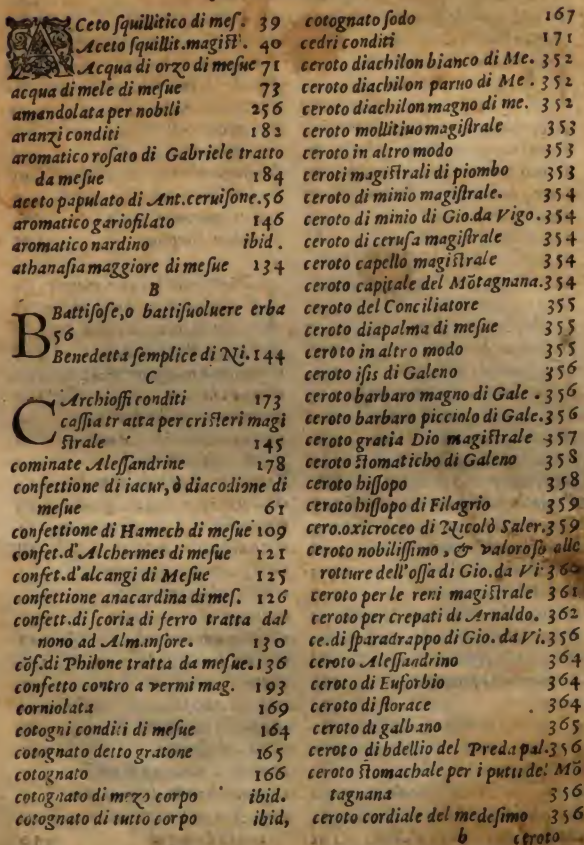 ACeto ſquillitico di meſ. 39
Aceto ſquillit.magiſt. 40
Acqua di orzo di meſue 71
acqua di mele di meſue 73
amandolata per nobili 256
aranzi conditi 182
aromatico roſato di Gabriele tratto
da meſue 184
aceto papulato di Ant.ceruiſone.56
aromatico gariofilato 146
aromatico nardino ibid.
athanaſia maggiore di meſue 134
B
BBattiſoſe,o battiſuoluere erba
56
Benedetta ſemplice di Ni. 144
C
CArchioffi conditi 173
caſſia tratta per criſteri magi
ſtrale 145
cominate Aleſſandrine 178
confettione di iacur, ò diacodione di
meſue 61
confettione di Hamech di meſue 109
confet.d'Alchermes di meſue 121
confet.d'alcangi di Meſue 125
confettione anacardina di meſ. 126
confett.di ſcoria di ferro tratta dal
nono ad Almanſore. 130
cōf.di Philone tratta da meſue.136
confetto contro a vermi mag. 193
corniolata 169
cotogni conditi di meſue 164
cotognato detto gratone 165
cotognato 166
cotognato di mezo corpo ibid.
cotognato di tutto corpo ibid,
cotognato ſodo 167
cedri conditi 171
ceroto diachilon bianco di Me. 352
ceroto diachilon paruo di Me . 352
ceroto diachilon magno di me. 352
ceroto mollitiuo magiſtrale 353
ceroto in altro modo 353
ceroti magiſtrali di piombo 353
ceroto di minio magiſtrale. 354
ceroto di minio di Gio.da Vigo.354
ceroto di ceruſa magiſtrale 354
ceroto capello magiſtrale 354
ceroto capitale del Mōtagnana.354
ceroto del Conciliatore 355
ceroto diapalma di meſue 355
ceroto in altro modo 355
ceroto iſis di Galeno 356
ceroto barbaro magno di Gale . 356
ceroto barbaro picciolo di Gale.356
ceroto gratia Dio magiſtrale 357
ceroto ſtomaticho di Galeno 358
ceroto hiſſopo 358
ceroto hiſſopo di Filagrio 359
cero.oxicroceo di Nicolò Saler.359
ceroto nobiliſſimo , & valoroſo alle
rotture dell'oſſa di Gio.da Vi 360
ceroto per le reni magiſtrale 361
ceroto per crepati di Arnaldo. 362
ce.di ſparadrappo di Gio. da Vi.356
ceroto Aleſſandrino 364
ceroto di Euforbio 364
ceroto di ſtorace 364
ceroto di galbano 365
ceroto di bdellio del Preda pal.356
ceroto ſtomachale per i putti del Mō
tagnana 356
ceroto cordiale del medeſimo 356
b ceroto